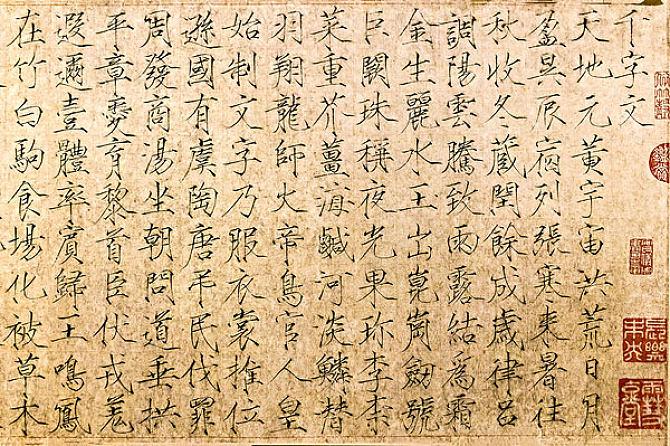 千字文
天地元黃宇宙洪荒日月
盈昃辰宿列張寒來暑往
秋收冬藏閏餘成歲律呂
調陽雲騰致雨露結爲霜
金生麗水玉出崑崗劔號
巨闕珠稱夜光果珍李柰
菜重芥薑海鹹河淡鱗潛
羽翔龍師火帝鳥官人皇
始制文字乃服衣裳推位
遜國有虞陶唐弔民伐罪
周發商湯坐朝問道垂拱
平章愛育黎首臣伏戎羌
遐邇壹體率賓歸王鳴鳳
在竹白駒食場化被草木